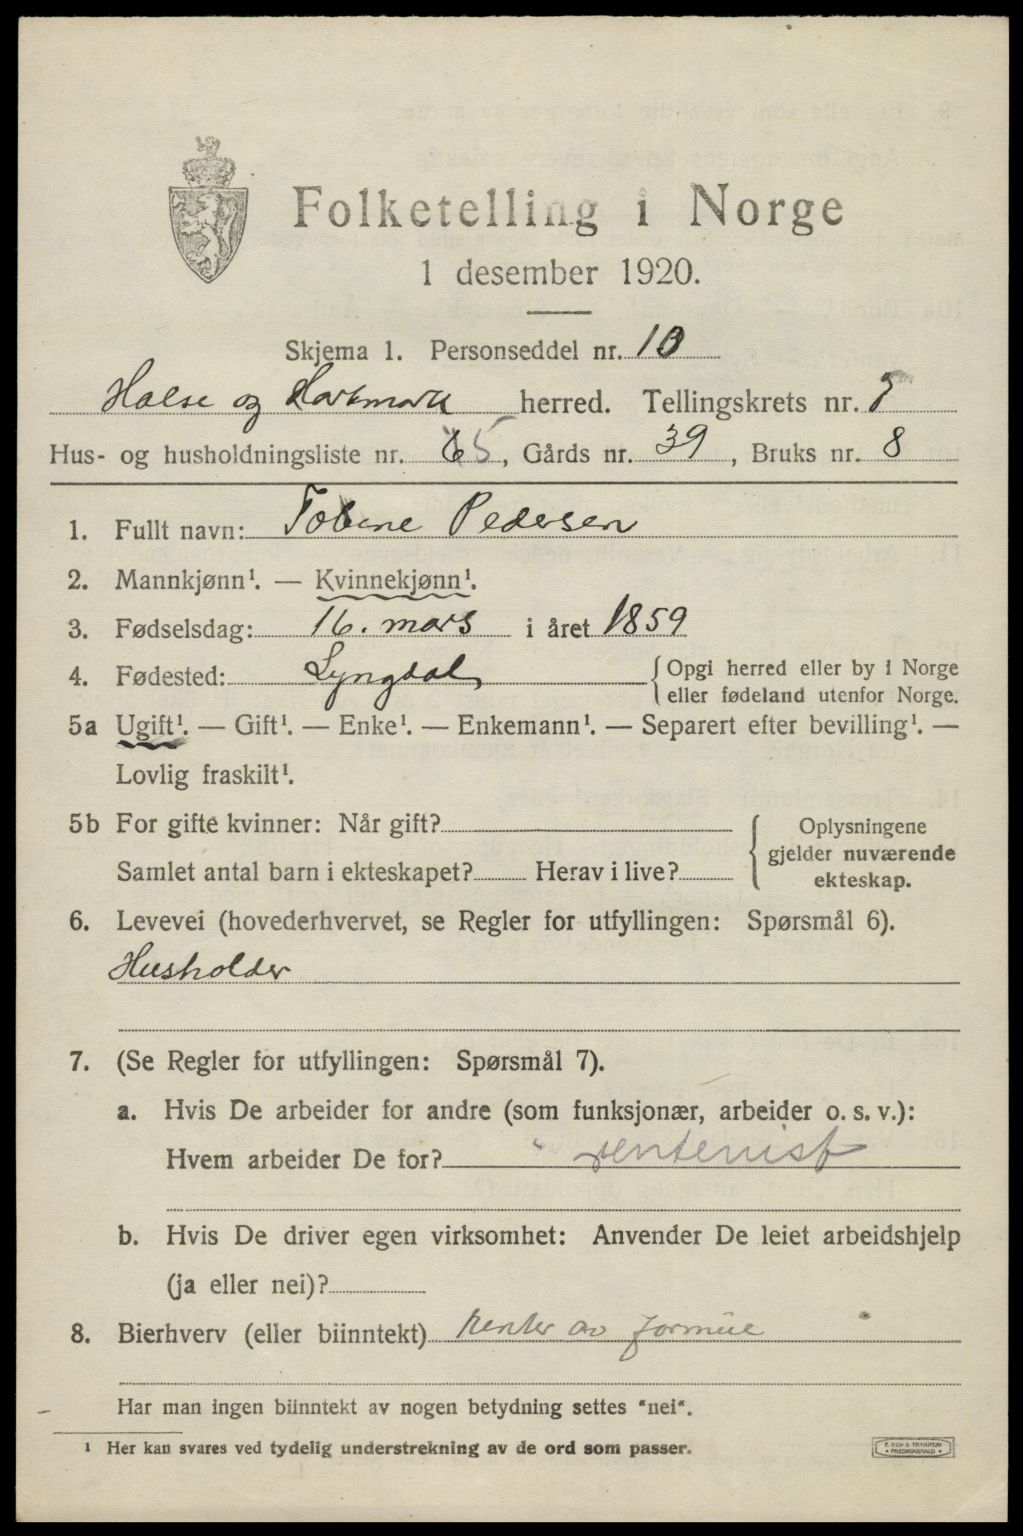 Folketelling i Norge
1 desember 1920.
Skjema 1. Personseddel nr. 10
Halse og Harkmark herred. Tellingskrets nr. 7
Hus- og husholdningsliste nr. 65, Gårds nr. 39, Bruks nr. 8
1. Fullt navn: Tobine Pedersen
2. Mannkjønn¹. — Kvinnekjønn¹.
3. Fødselsdag: 16. mars i året 1859
4. Fødested: Lyngdal { Opgi herred eller by i Norge
eller fødeland utenfor Norge.
5a Ugift¹. — Gift¹. — Enke¹. — Enkemann¹. — Separert efter bevilling¹. —
Lovlig fraskilt¹.
5b For gifte kvinner: Når gift?
Samlet antal barn i ekteskapet? Herav i live?
Oplysningene
gjelder nuværende
ekteskap.
6. Levevei (hovederhvervet, se Regler for utfyllingen: Spørsmål 6).
Husholder
7. (Se Regler for utfyllingen: Spørsmål 7).
a. Hvis De arbeider for andre (som funksjonær, arbeider o. s. v.):
Hvem arbeider De for? rentenist
b. Hvis De driver egen virksomhet: Anvender De leiet arbeidshjelp
(ja eller nei)?
8. Bierhverv (eller biinntekt) Renter av formue
Har man ingen biinntekt av nogen betydning settes "nei".
¹ Her kan svares ved tydelig understrekning av de ord som passer.